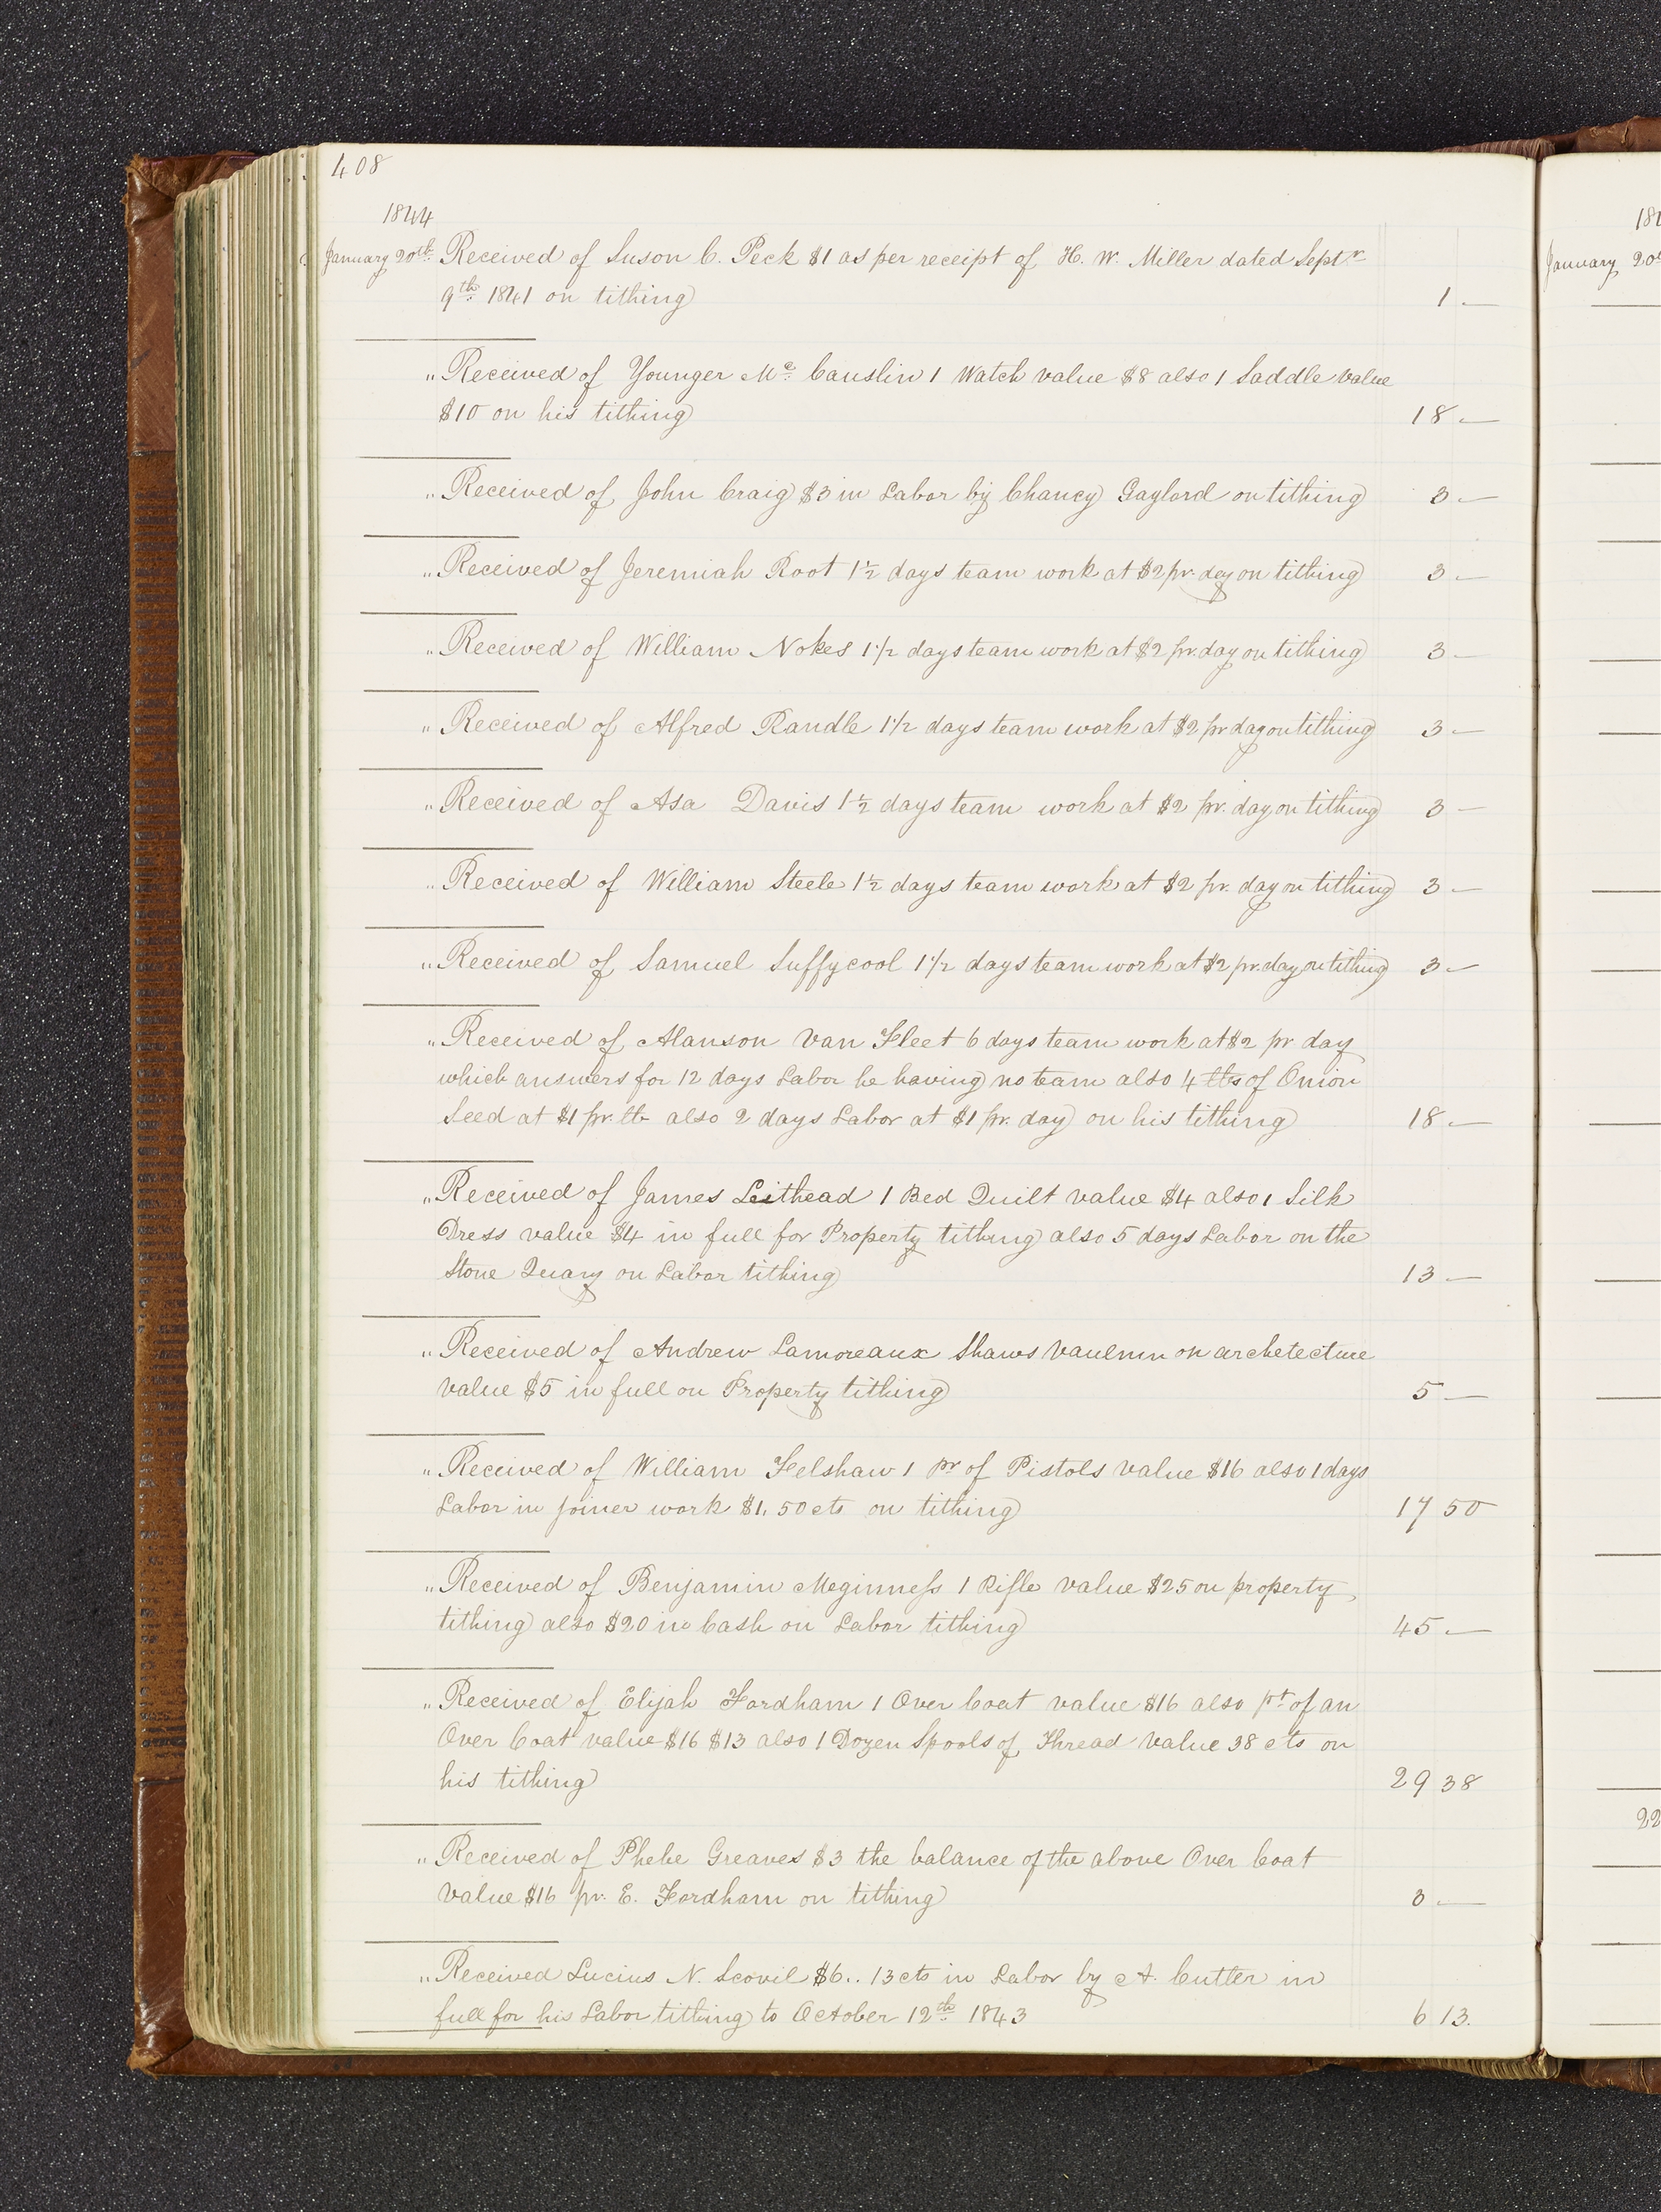 408
1844
January 20th. Received of Suson C. Peck $1 as per receipt of H. W. Miller dated Septr
9th. 1841 on tithing 1 —
" Received of Younger Mc. Causlin 1 Watch value $8 also 1 Saddle value
$10 on his tithing 18 —
" Received of John Craig $3 in Labor by Chancy Gaylord on tithing 3 —
" Received of Jeremiah Root 1½ days team work at $2 pr. day on tithing 3 —
" Received of William Nokes 1½ days team work at $2 pr. day on tithing 3 —
" Received of Alfred Randle 1½ days team work at $2 pr day on tithing 3 —
" Received of Asa Davis 1½ days team work at $2 pr. day on tithing 3 —
" Received of William Steele 1½ days team work at $2 pr. day on tithing 3 —
" Received of Samuel Suffycool 1½ days team work at $2 pr. day on tithing 3 —
" Received of Alanson Van Fleet 6 days team work at $2 pr day
which answers for 12 days Labor he having no team also 4 lbs of Onion
Seed at $1 pr. lb also 2 days Labor at $1 pr. day on his tithing 18 —
" Received of James Leithead 1 Bed Quilt value $4 also 1 Silk
Dress value $4 in full for Property tithing also 5 days Labor on the
Stone Quary on Labor tithing 13 —
" Received of Andrew Lamoreaux Shaws on archetecture
value $5 in full on Property tithing 5 —
" Received of William Felshaw 1 pr of Pistols value $16 also 1 days
Labor in Joiner work $1. 50 cts on tithing 17 50
" Received of Benjamin Meginness 1 Rifle value $25 on property
tithing also $20 in Cash on Labor tithing 45 —
" Received of Elijah Fordham 1 Over Coat value $16 also pt. of an
Over Coat value $16 $13 also 1 Dozen Spools of Thread value 38 cts on
his tithing 29 38
" Received of Phebe Greaves $3 the balance of the above Over Coat
value $16 pr. E. Fordham on tithing 3 —
" Received Lucius N. Scovil $6.. 13 cts in Labor by A. Cutler in
full for his Labor tithing to October 12th. 1843 6 13.
184
January 20
22